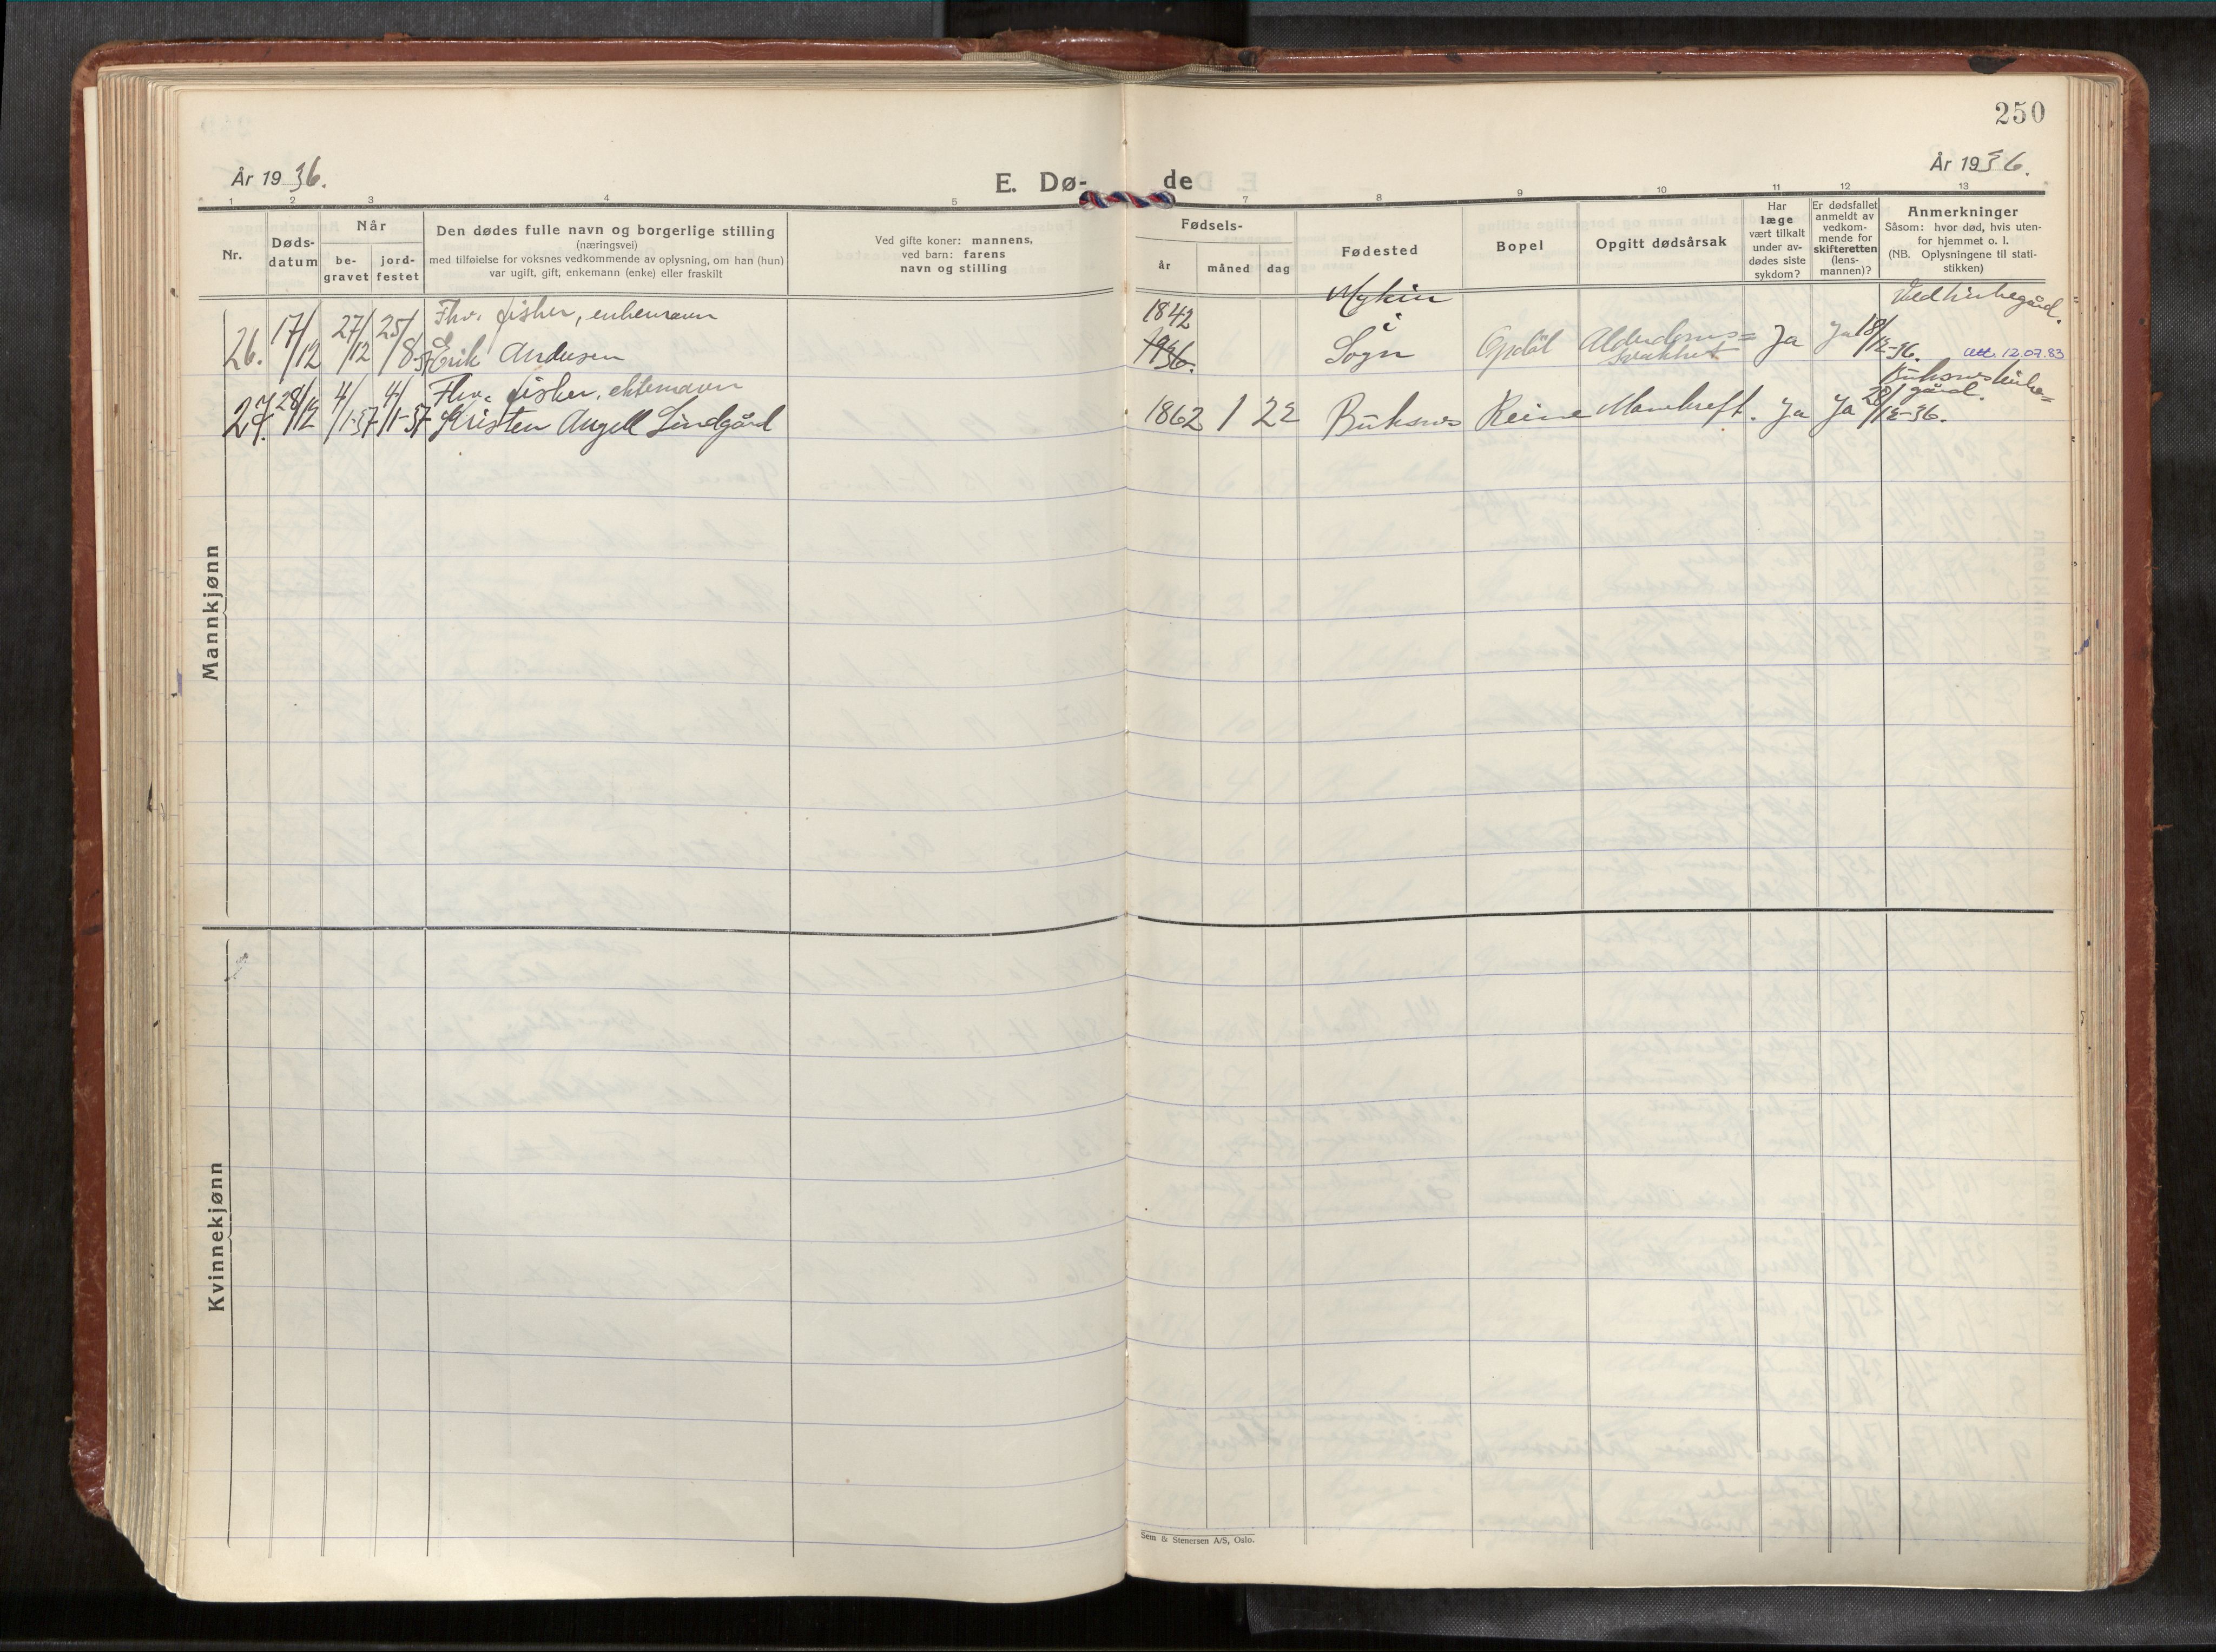 250
År 1936.
År 1936.
E. Dø-
de
1 2 3 4 5 7 8 9 10 11 12 13
Nr.
Døds-
datum
Når
be-
gravet
jord-
festet
Den dødes fulle navn og borgerlige stilling
(næringsvei)
med tilføielse for voksnes vedkommende av oplysning, om han (hun)
var ugift, gift, enkemann (enke) eller fraskilt
Ved gifte koner: mannens,
ved barn: farens
navn og stilling
Fødsels-
år
måned
dag
Fødested
Bopel
Opgitt dødsårsak
Har
læge
vært tilkalt
under av-
dødes siste
sykdom?
Er dødsfallet
anmeldt av
vedkom-
mende for
skifteretten
(lens-
mannen)?
Anmerkninger
Såsom: hvor død, hvis uten-
for hjemmet o. l.
(NB. Oplysningene til stati-
stikken)
Mannkjønn
26. 17/12 27/12 25/8-37
Fhv. fisker, enkemann
Erik Andersen
1842
1936.
i
Sogn
Opdøl
Alderdoms=
svakhet
Ja
Ja 18/12-36.
12.07.83
27. 28/12 4/1-37 4/1-37
Fhv. fisker, ektemann
Kristen Angell Lindgård
1862 1 22 Buksnes Reine Marekreft. Ja Ja 28/12-36.
Buksnes kirke=
gård.
Kvinnekjønn
Sem & Stenersen A/S, Oslo.